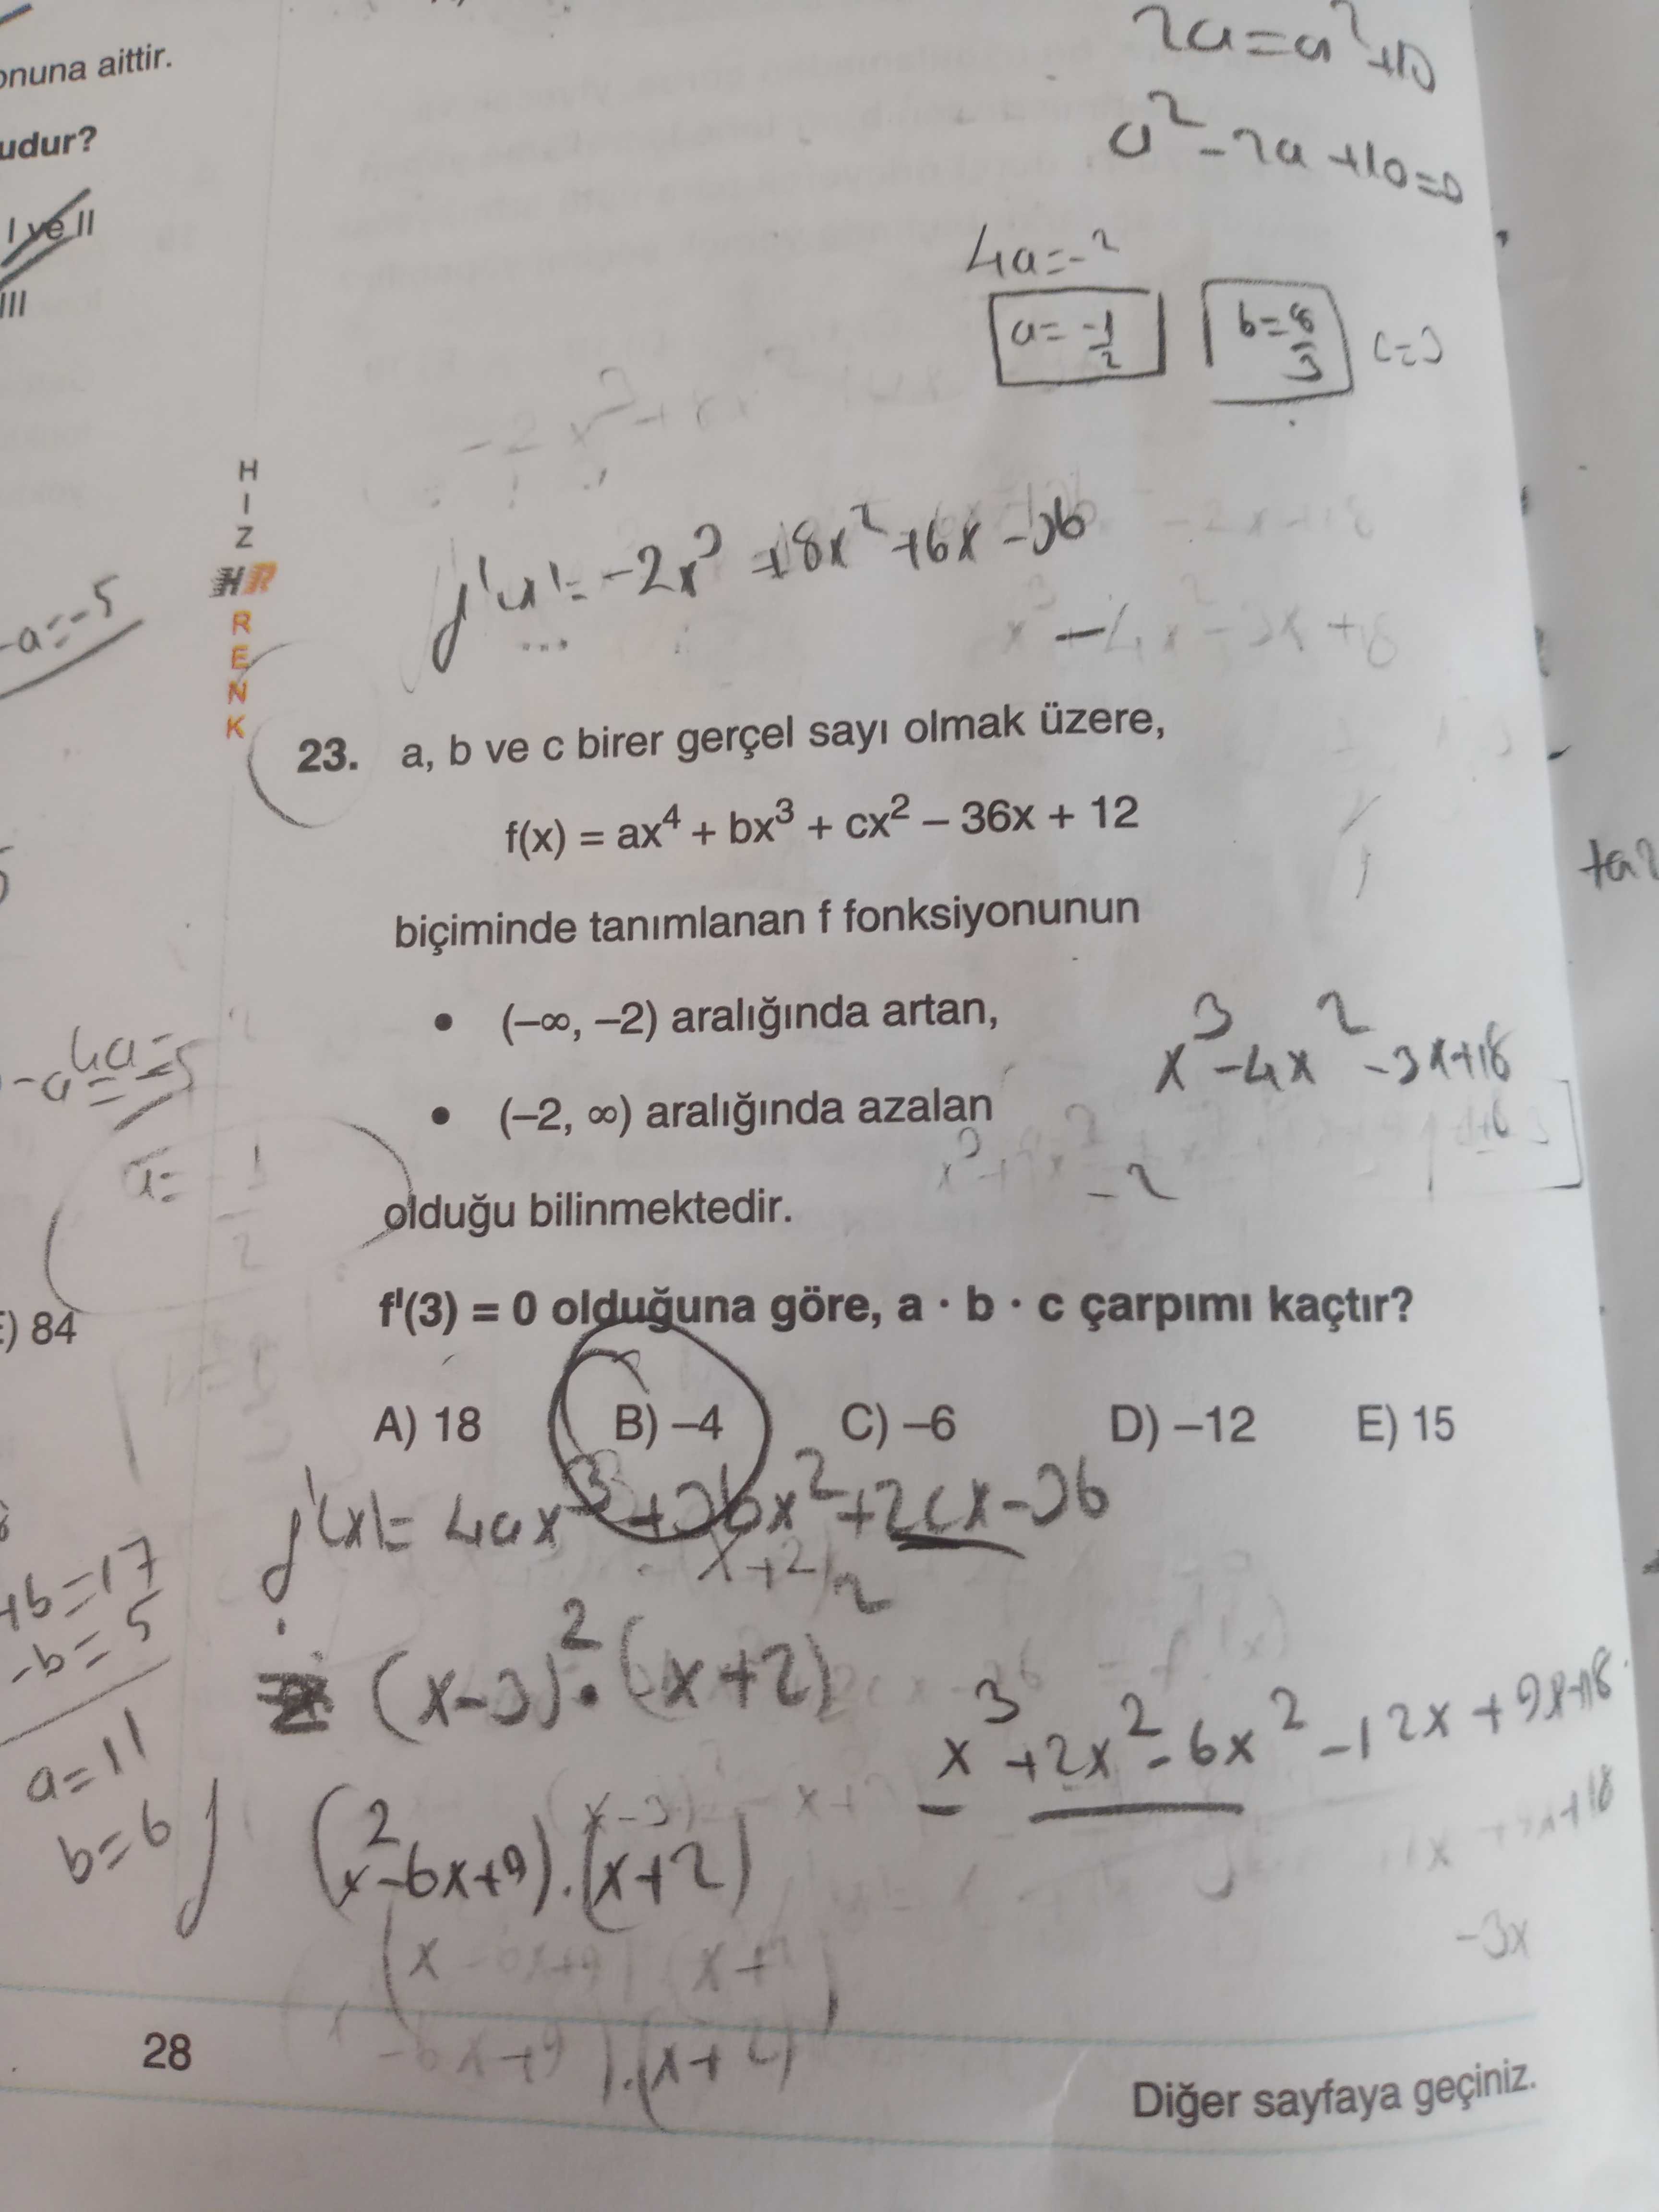 onuna aittir.
udur?
I ve II
III
-a=-5
4a=
a=-1
2
E) 84
+b=17
-b=5
a=11
b=6
2a=a²+10
a²-2a+10=0
4a=-2
a=-1/2
b=8/3
c=3
HIZ
HR
RENK
f'(x)=-2x³+8x²+6x-36
x³-4x²-3x+18
23. a, b ve c birer gerçel sayı olmak üzere,
f(x) = ax⁴ + bx³ + cx² – 36x + 12
biçiminde tanımlanan f fonksiyonunun
• (–∞, –2) aralığında artan,
• (–2, ∞) aralığında azalan
olduğu bilinmektedir.
x³-4x²-3x+18
-2
f'(3) = 0 olduğuna göre, a · b · c çarpımı kaçtır?
A) 18 B) –4 C) –6 D) –12 E) 15
f'(x)=4ax³+3bx²+2cx-36
(x+2)
2
(x-3)²·(x+2)
x³+2x²-6x²-12x+9x+18
(x-3)
(x²-6x+9).(x+2)
-3x
28
Diğer sayfaya geçiniz.